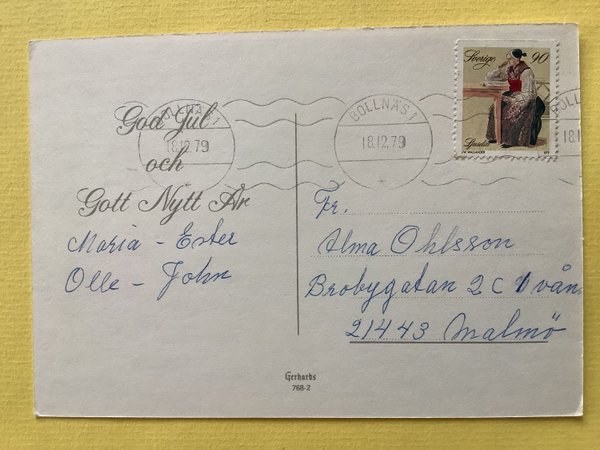 Sverige 90
BOLLNÄS 1
18.12.79
BOLLNÄS 1
18.12.79
BOLLNÄS 1
God Jul
och
Gott Nytt År
Maria - Ester
Olle - John
Fr.
Alma Ohlsson
Brobygatan 2 C 1 vån
21443 Malmö
Gerhards
768-2